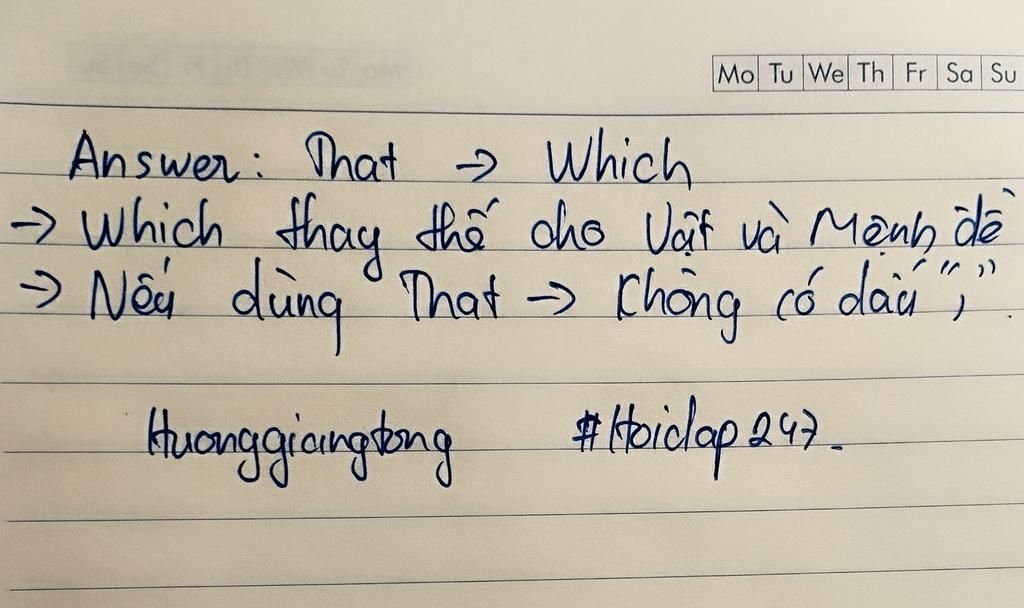 Mo Tu We Th Fr Sa Su
Answer: That → Which
→ Which thay thế cho Vật và Mệnh đề
→ Nếu dùng That → Không có dấu ",".
Huonggiangtong #Hoidap247.